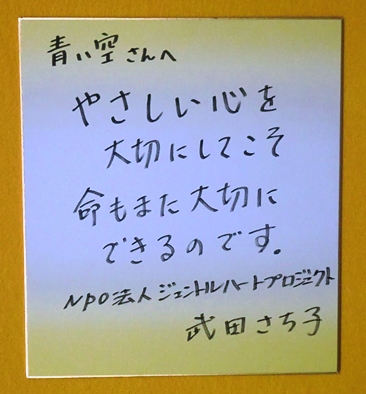 青い空さんへ
やさしい心を
大切にしてこそ
命もまた大切に
できるのです。
NPO法人ジェントルハートプロジェクト
武田さち子